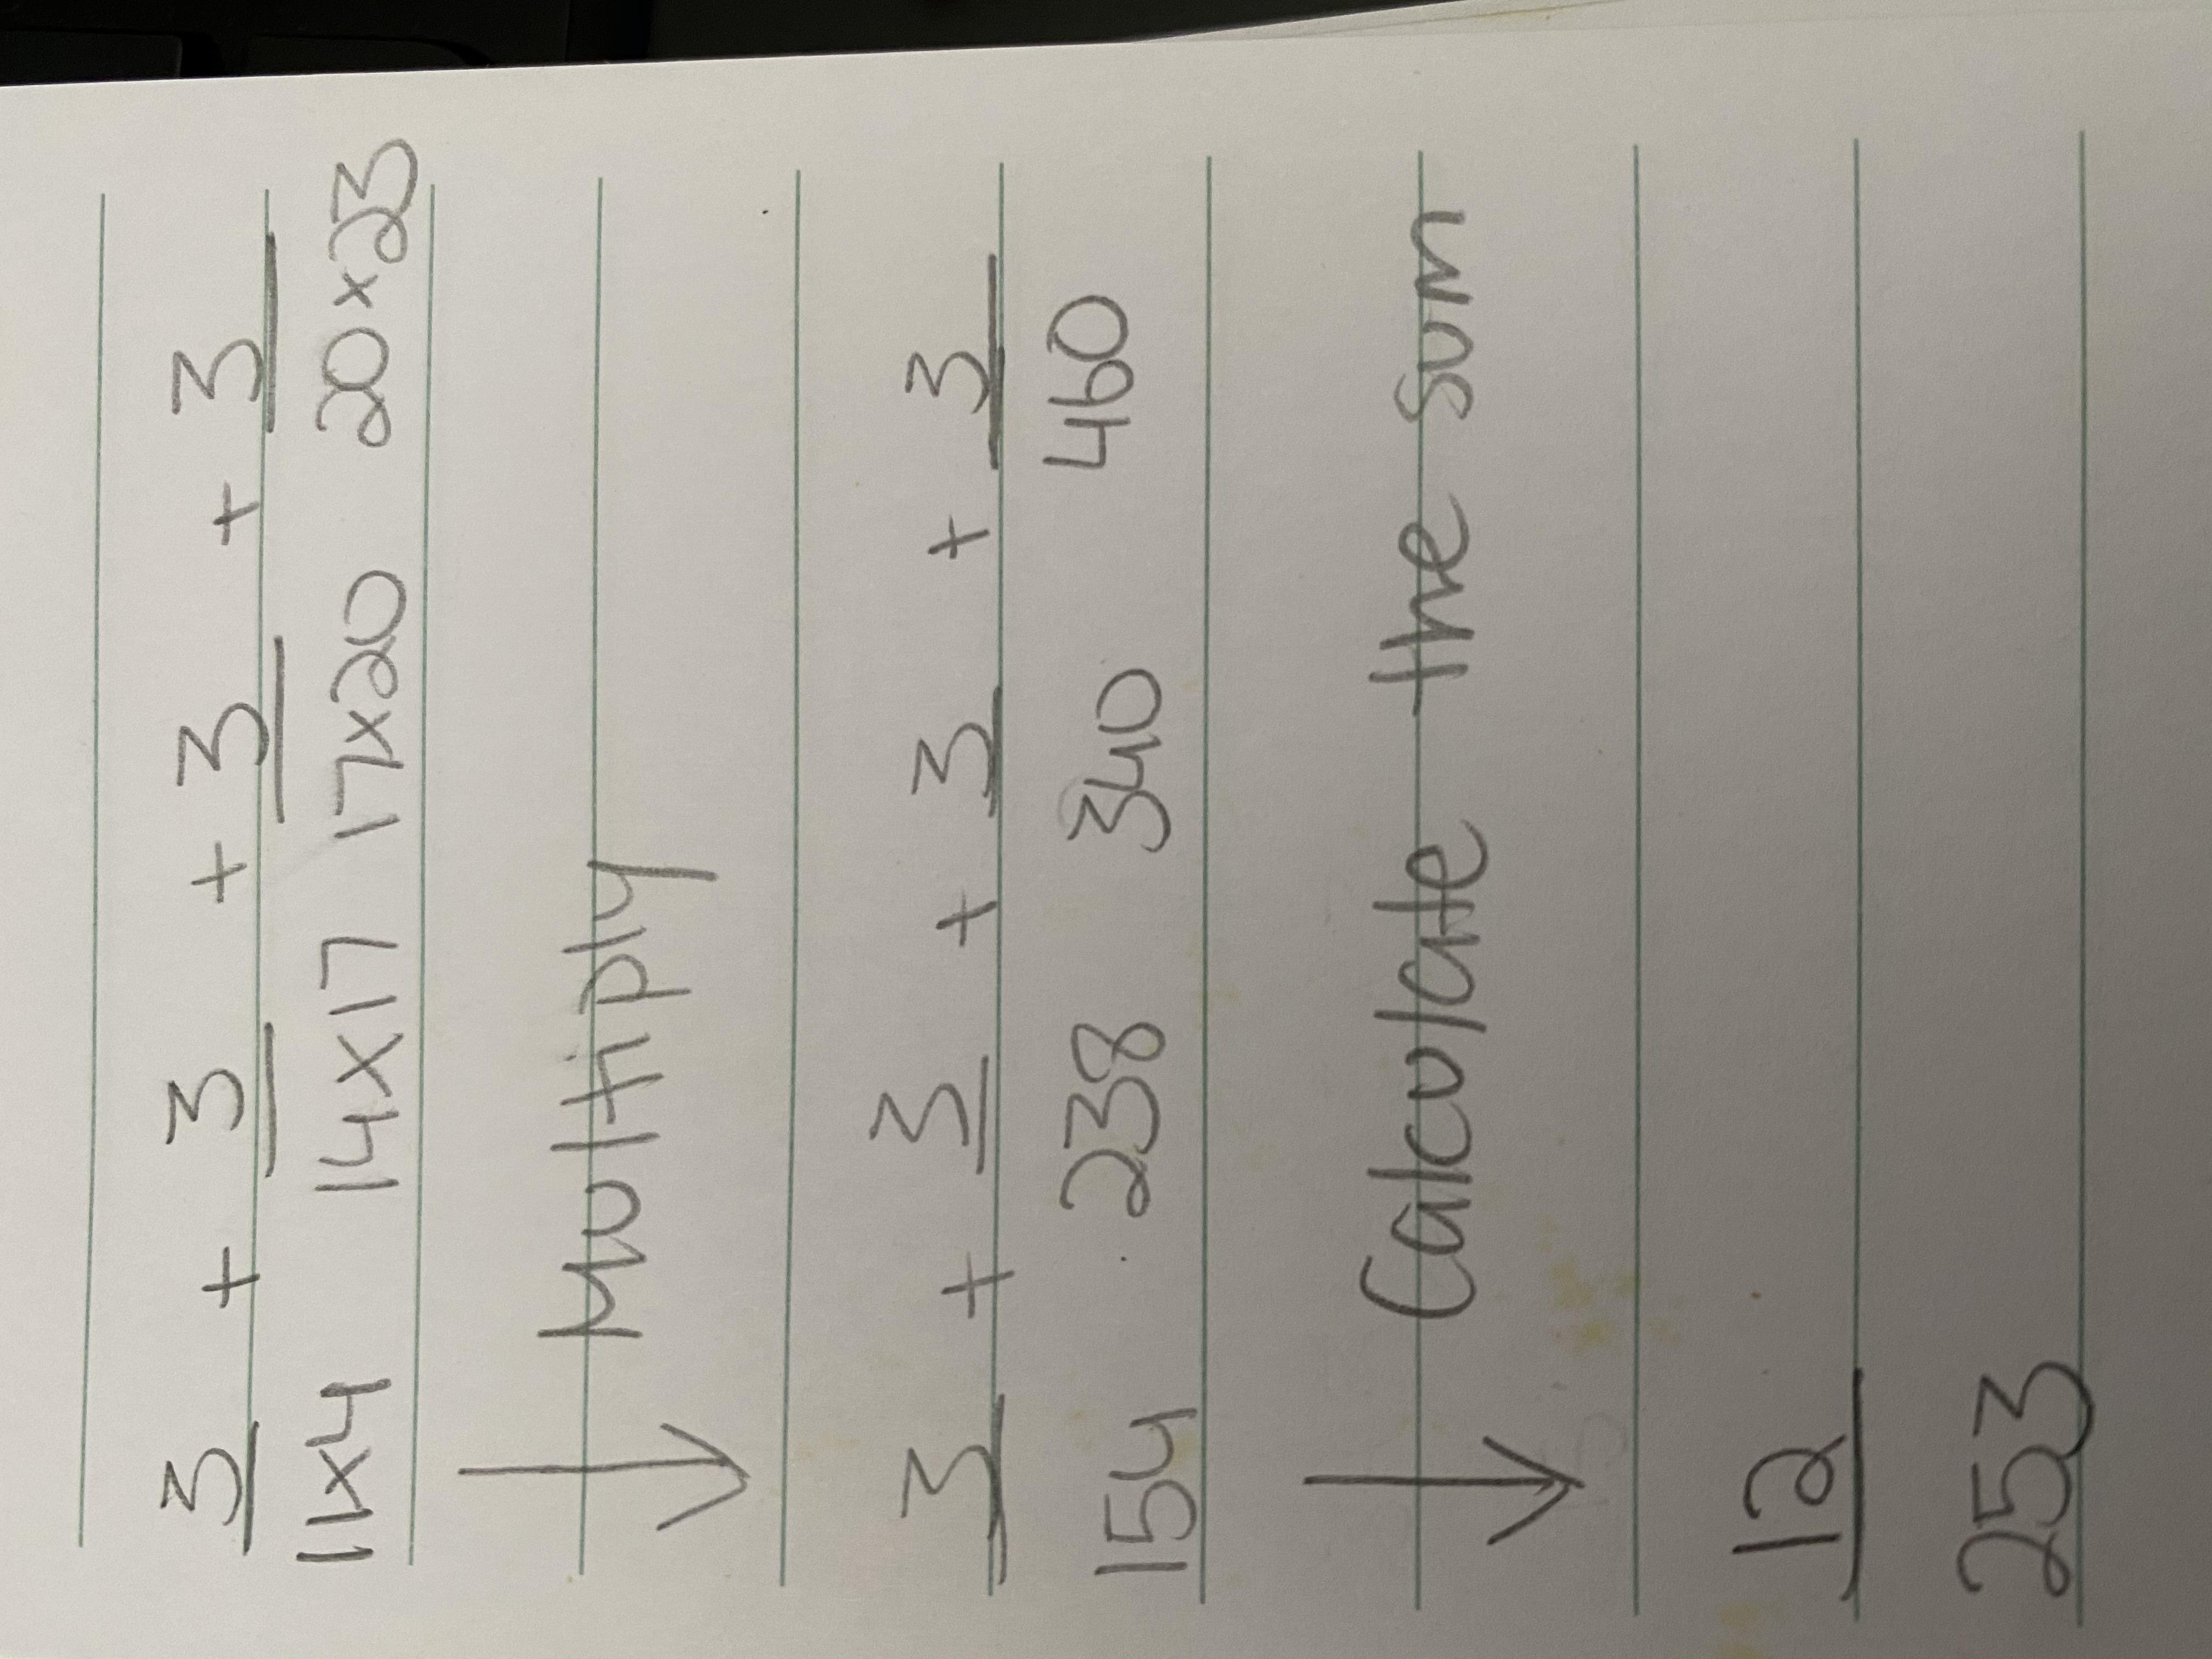 3/11x4 + 3/14x17 + 3/17x20 + 3/20x23
↓ Multiply
3/154 + 3/238 + 3/340 + 3/460
↓ Calculate the sum
12/253